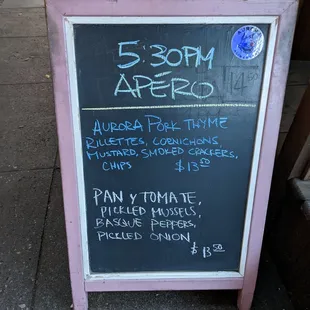 5:30PM
APÉRO
14
AURORA PORK THYME
RILLETTES, CORNICHONS,
MUSTARD, SMOKED CRACKERS,
CHIPS $13.50
PAN Y TOMATE,
PICKLED MUSSELS,
BASQUE PEPPERS,
PICKLED ONION
$13.50